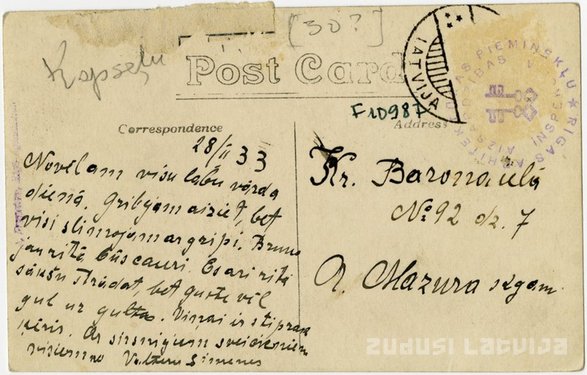 [30?]
Kapsētu
Post Card
LATVIJA
PIEMINEKĻU
RĪGAS
F10987
Correspondence
Address
28/II 33
Novēlam visu labu vārda
dienā. Gribējām aiziet, bet
visi slimojam ar gripi. Bruno
jau rītā būs cauri. Es arī rītā
sākšu strādāt bet guste vēl
guļ uz gultas. Viņai ir stipras
Ar sirsnīgiem sveicieniem
visiem no Valtera Simenes
Kr. Barona ielā
No 92 dz. 7
A. Mazura kgam.
ZUDUSI LATVIJA